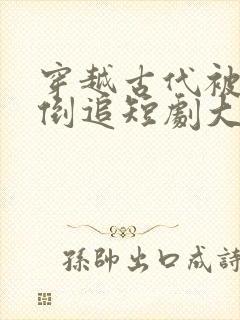 穿越古代被
倒追短劇大
孫帥出口成詩